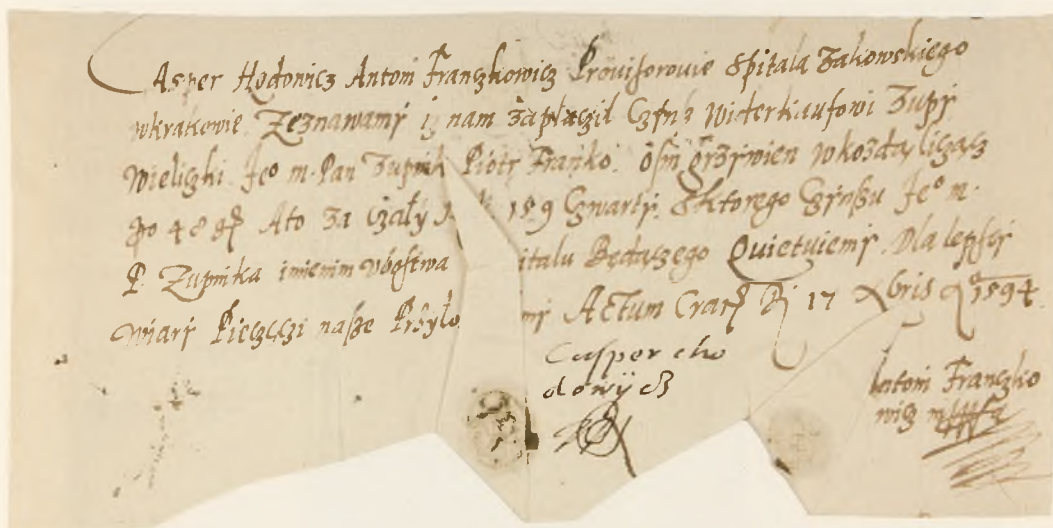 Casper Hodonicz Antoni Franczkowicz Prouisorouie Spitala Zakowskiego
wkrakowie Zeznawamy iz nam zapłaczil Czÿnß Widerkaufowi Zupÿ
Wieliczki Jeº m. Pan Zupnik Piotr Franko. Osm grzÿwien wkozdą liczącz
po 48 gr Ato za Czały 159 Czwartÿ. Sktorego Czÿnßu Jeº m.
P. Zupnika imienim vbostwa italu Będączego Quietuiemÿ. Dla lepßeÿ
Wiarÿ Pieczęczi naße Przÿło mÿ Actum Crac 17 Xbris 1594.
Casper cho
dowÿcz
Antoni Franczko
wicz